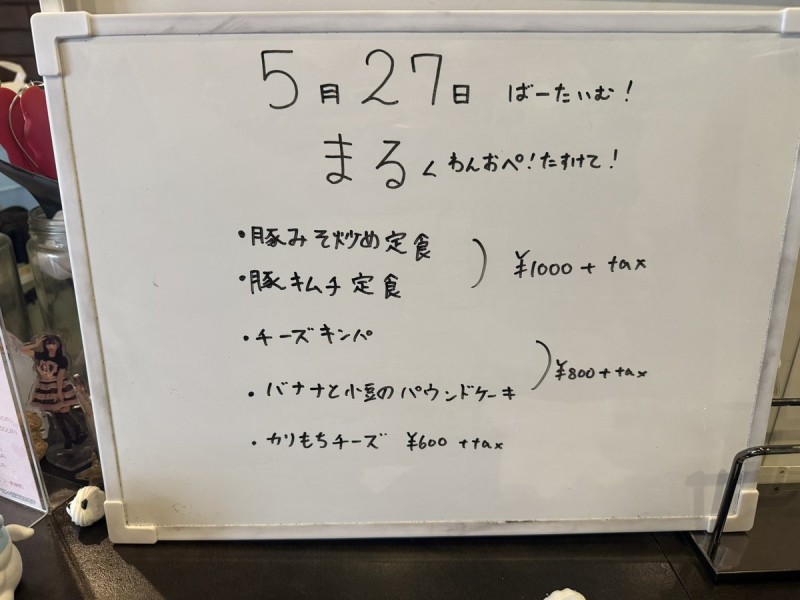 5月27日 ばーたいむ!
まるくわんおぺ!たすけて!
・豚みそ炒め定食
・豚キムチ定食
¥1000 + tax
・チーズキンパ
・バナナと小豆のパウンドケーキ
¥800 + tax
・カリもちチーズ ¥600 + tax